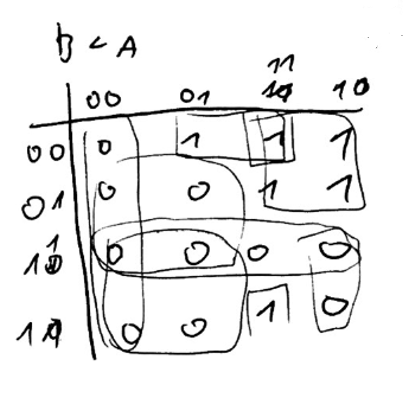 B < A
00 01 11 10
00 0 1 1 1
01 0 0 1 1
11 0 0 0 0
10 0 0 1 0